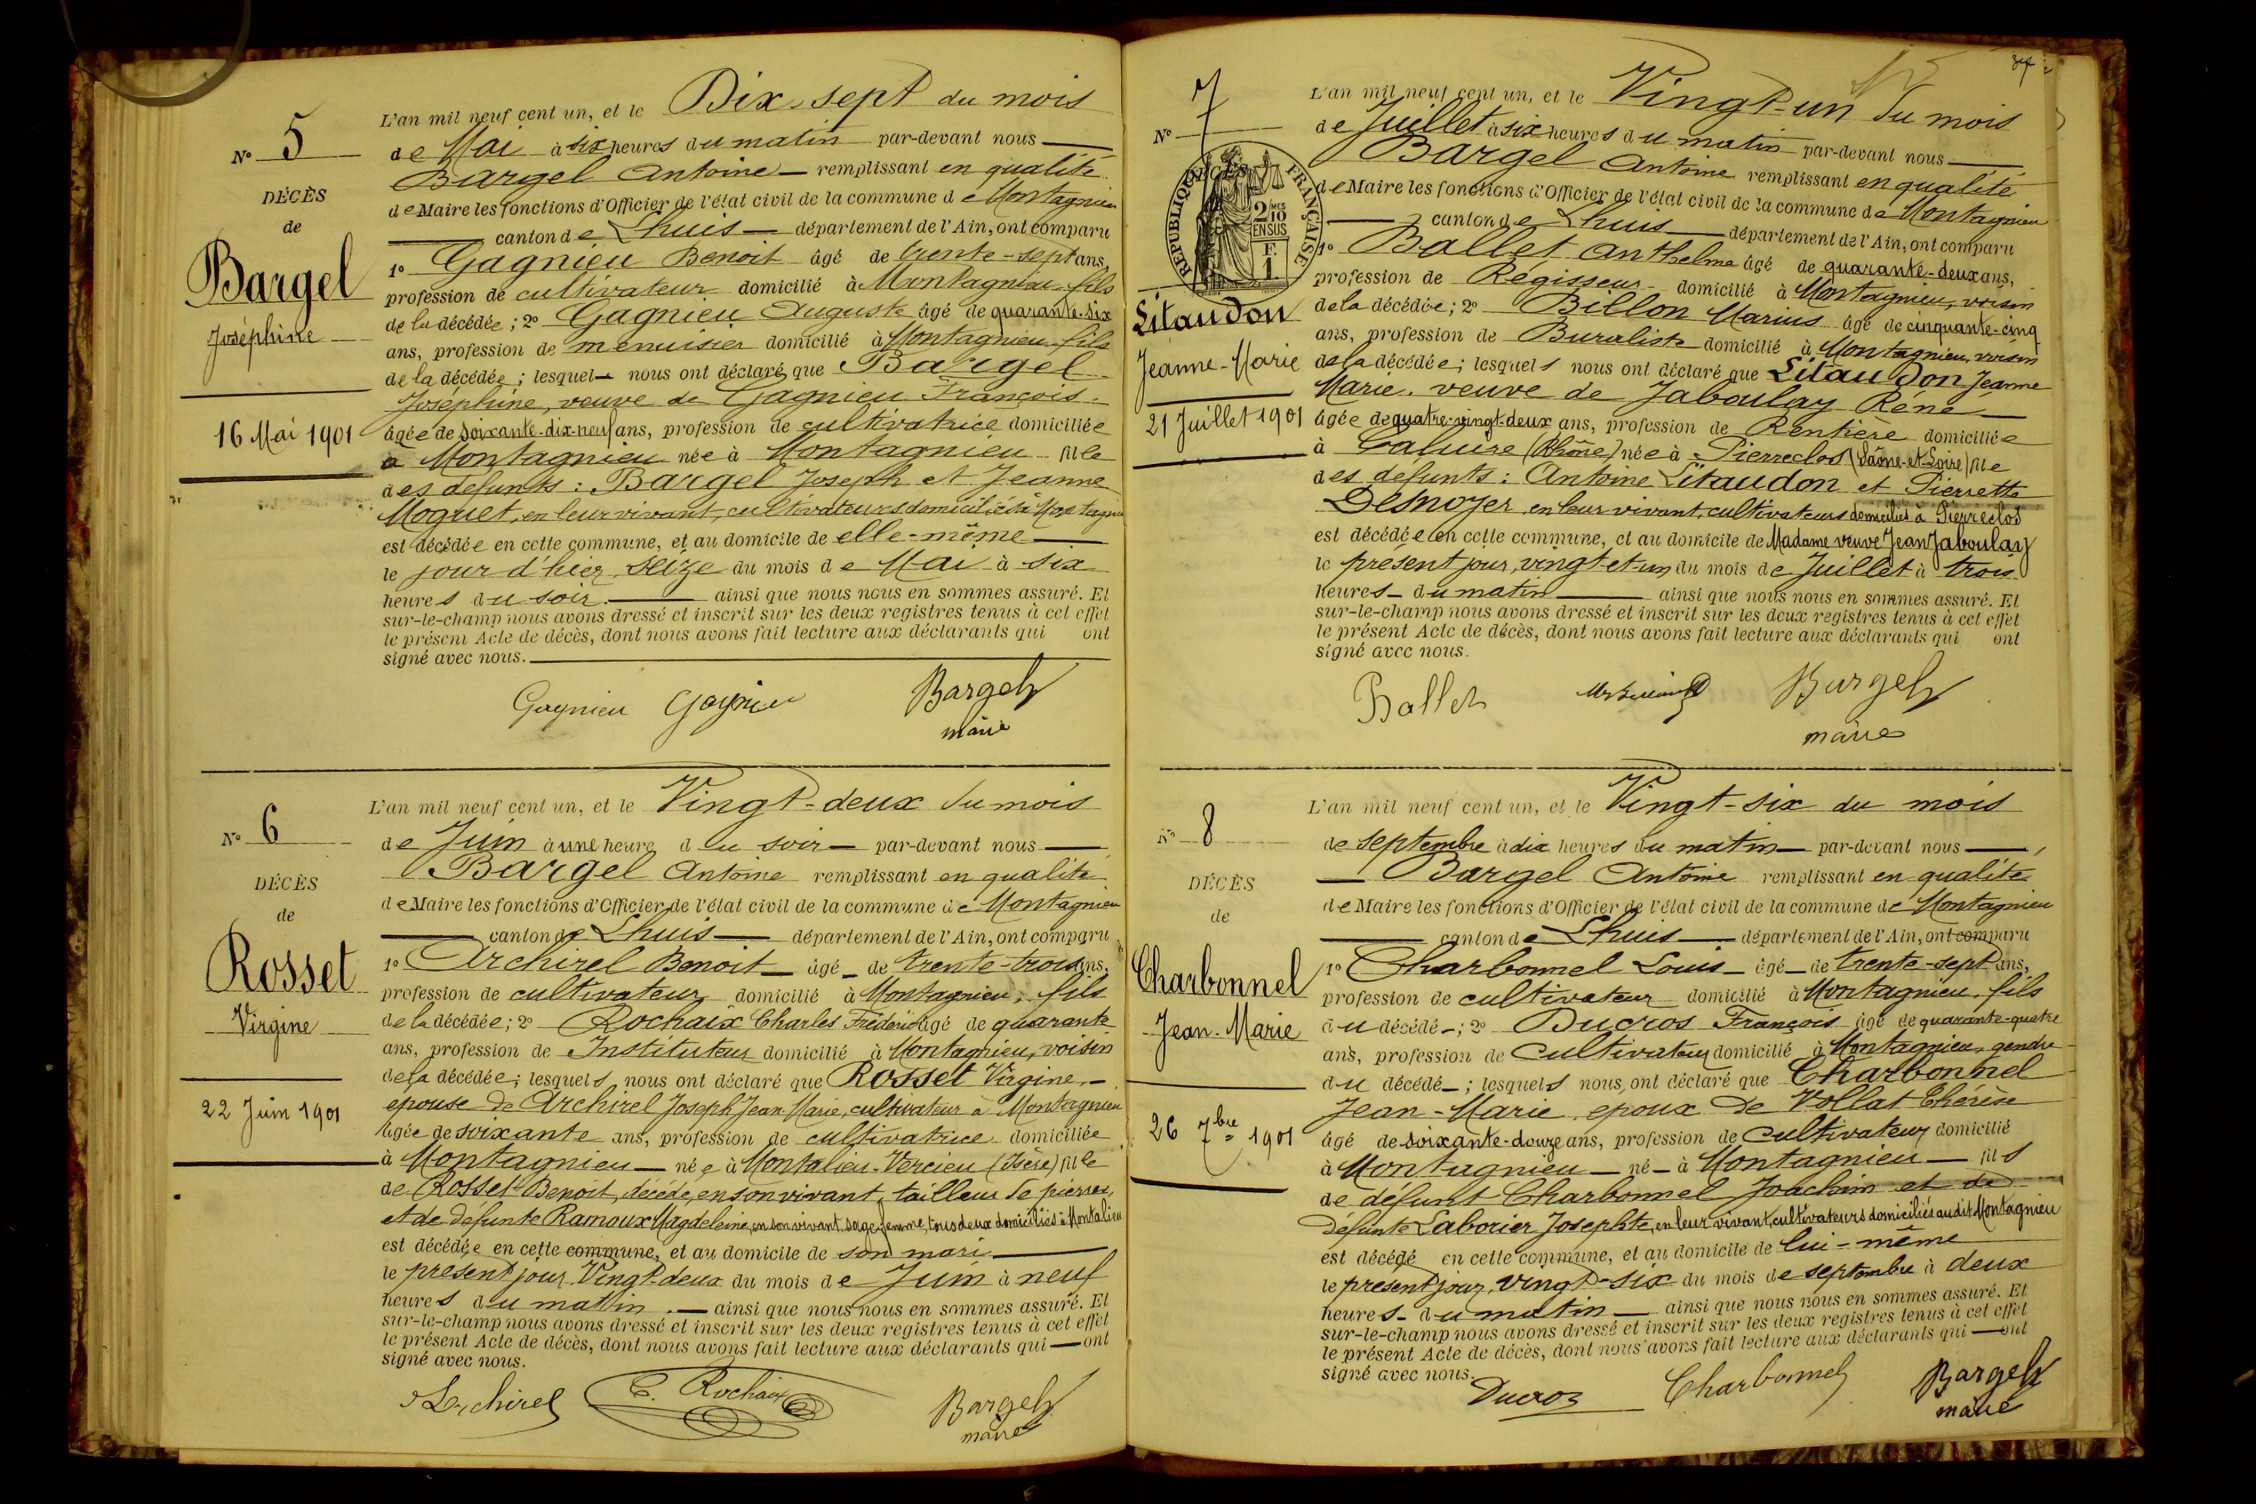 N° 5
DÉCÈS
de
Bargel
Joséphine
16 Mai 1901
L'an mil neuf cent un, et le Dix-sept du mois
de Mai à six heures du matin par-devant nous
Bargel Antoine remplissant en qualité
de Maire les fonctions d'Officier de l'état civil de la commune de Montagnieu
canton de Lhuis département de l'Ain, ont comparu
1° Gagnieu Benoit âgé de trente-sept ans,
profession de cultivateur domicilié à Montagnieu, fils
de la décédée; 2° Gagnieu Auguste âgé de quarante-six
ans, profession de menuisier domicilié à Montagnieu fils
de la décédée; lesquel nous ont déclaré que Bargel
Joséphine, veuve de Gagnieu François.
âgée de soixante-dix-neuf ans, profession de cultivatrice domiciliée
à Montagnieu née à Montagnieu fille
des defunts: Bargel Joseph et Jeanne
Moquet, en leur vivant, cultivateurs domiciliés à Montagnieu
est décédée en cette commune, et au domicile de elle-même
le jour d'hier seize du mois de Mai à six
heures du soir. ainsi que nous nous en sommes assuré. Et
sur-le-champ nous avons dressé et inscrit sur les deux registres tenus à cet effet
le présent Acte de décès, dont nous avons fait lecture aux déclarants qui ont
signé avec nous.
Gagnieu Gagnieu Bargel
maire
N° 6
DÉCÈS
de
Rosset
Virgine
22 Juin 1901
L'an mil neuf cent un, et le Vingt-deux du mois
de Juin à une heure du soir par-devant nous
Bargel Antoine remplissant en qualité
de Maire les fonctions d'Officier de l'état civil de la commune de Montagnieu
canton de Lhuis département de l'Ain, ont comparu
1° Archirel Benoit âgé de trente-trois ans,
profession de cultivateur domicilié à Montagnieu, fils
de la décédée; 2° Rochaix Charles Frédéric âgé de quarante
ans, profession de Instituteur domicilié à Montagnieu, voisin
de la décédée; lesquels nous ont déclaré que Rosset Virgine,
epouse de Archirel Joseph Jean Marie, cultivateur à Montagnieu
âgée de soixante ans, profession de cultivatrice domiciliée
à Montagnieu née à Montalieu-Vercieu (Isère) fille
de Rosset Benoit, décédé, en son vivant, tailleur de pierres,
et de defunte Ramoux Magdeleine, en son vivant sage-femme, tous deux domiciliés à Montalieu
est décédée en cette commune, et au domicile de son mari
le présent jour Vingt-deux du mois de Juin à neuf
heures du matin. ainsi que nous nous en sommes assuré. Et
sur-le-champ nous avons dressé et inscrit sur les deux registres tenus à cet effet
le présent Acte de décès, dont nous avons fait lecture aux déclarants qui ont
signé avec nous.
Archirel C. Rochaix Bargel
maire
N° 7
DÉCÈS
RÉPUBLIQUE FRANÇAISE
2/10 EN SUS
1 F.
Litaudon
Jeanne-Marie
21 Juillet 1901
L'an mil neuf cent un, et le Vingt-un du mois
de Juillet à six heures du matin par-devant nous
Bargel Antoine remplissant en qualité
de Maire les fonctions d'Officier de l'état civil de la commune de Montagnieu
canton de Lhuis département de l'Ain, ont comparu
1° Ballet Anthelme âgé de quarante-deux ans,
profession de Régisseur domicilié à Montagnieu, voisin
de la décédée; 2° Billon Marius âgé de cinquante-cinq
ans, profession de Buraliste domicilié à Montagnieu, voisin
de la décédée; lesquels nous ont déclaré que Litaudon Jeanne
Marie. veuve de Jaboulay Réné
âgée de quatre-vingt-deux ans, profession de Rentière domiciliée
à Caluire (Rhône) née à Pierreclos (Saône-et-Loire) fille
des defunts: Antoine Litaudon et Pierrette
Desnoyer, en leur vivant, cultivateurs domiciliés à Pierreclos
est décédée en cette commune, et au domicile de Madame veuve Jean Jaboulay
le présent jour, vingt-et-un du mois de Juillet à trois
heures du matin ainsi que nous nous en sommes assuré. Et
sur-le-champ nous avons dressé et inscrit sur les deux registres tenus à cet effet
le présent Acte de décès, dont nous avons fait lecture aux déclarants qui ont
signé avec nous.
Ballet Bargel
maire
N° 8
DÉCÈS
de
Charbonnel
Jean-Marie
26 7bre 1901
L'an mil neuf cent un, et le Vingt-six du mois
de septembre à dix heures du matin par-devant nous
Bargel Antoine remplissant en qualité
de Maire les fonctions d'Officier de l'état civil de la commune de Montagnieu
canton de Lhuis département de l'Ain, ont comparu
1° Charbonnel Louis âgé de trente-sept ans,
profession de cultivateur domicilié à Montagnieu, fils
du décédé; 2° Ducros François âgé de quarante-quatre
ans, profession de Cultivateur domicilié à Montagnieu, gendre
du décédé; lesquels nous ont déclaré que Charbonnel
Jean-Marie, epoux de Vollat Thérèse
âgé de soixante-douze ans, profession de Cultivateur domicilié
à Montagnieu né à Montagnieu fils
de défunt Charbonnel Joachim et de
défunte Laborier Josephte, en leur vivant, cultivateurs domiciliés audit Montagnieu
est décédé en cette commune, et au domicile de lui-même
le présent jour, vingt-six du mois de septembre à deux
heures du matin ainsi que nous nous en sommes assuré. Et
sur-le-champ nous avons dressé et inscrit sur les deux registres tenus à cet effet
le présent Acte de décès, dont nous avons fait lecture aux déclarants qui ont
signé avec nous.
Ducros Charbonnel Bargel
maire